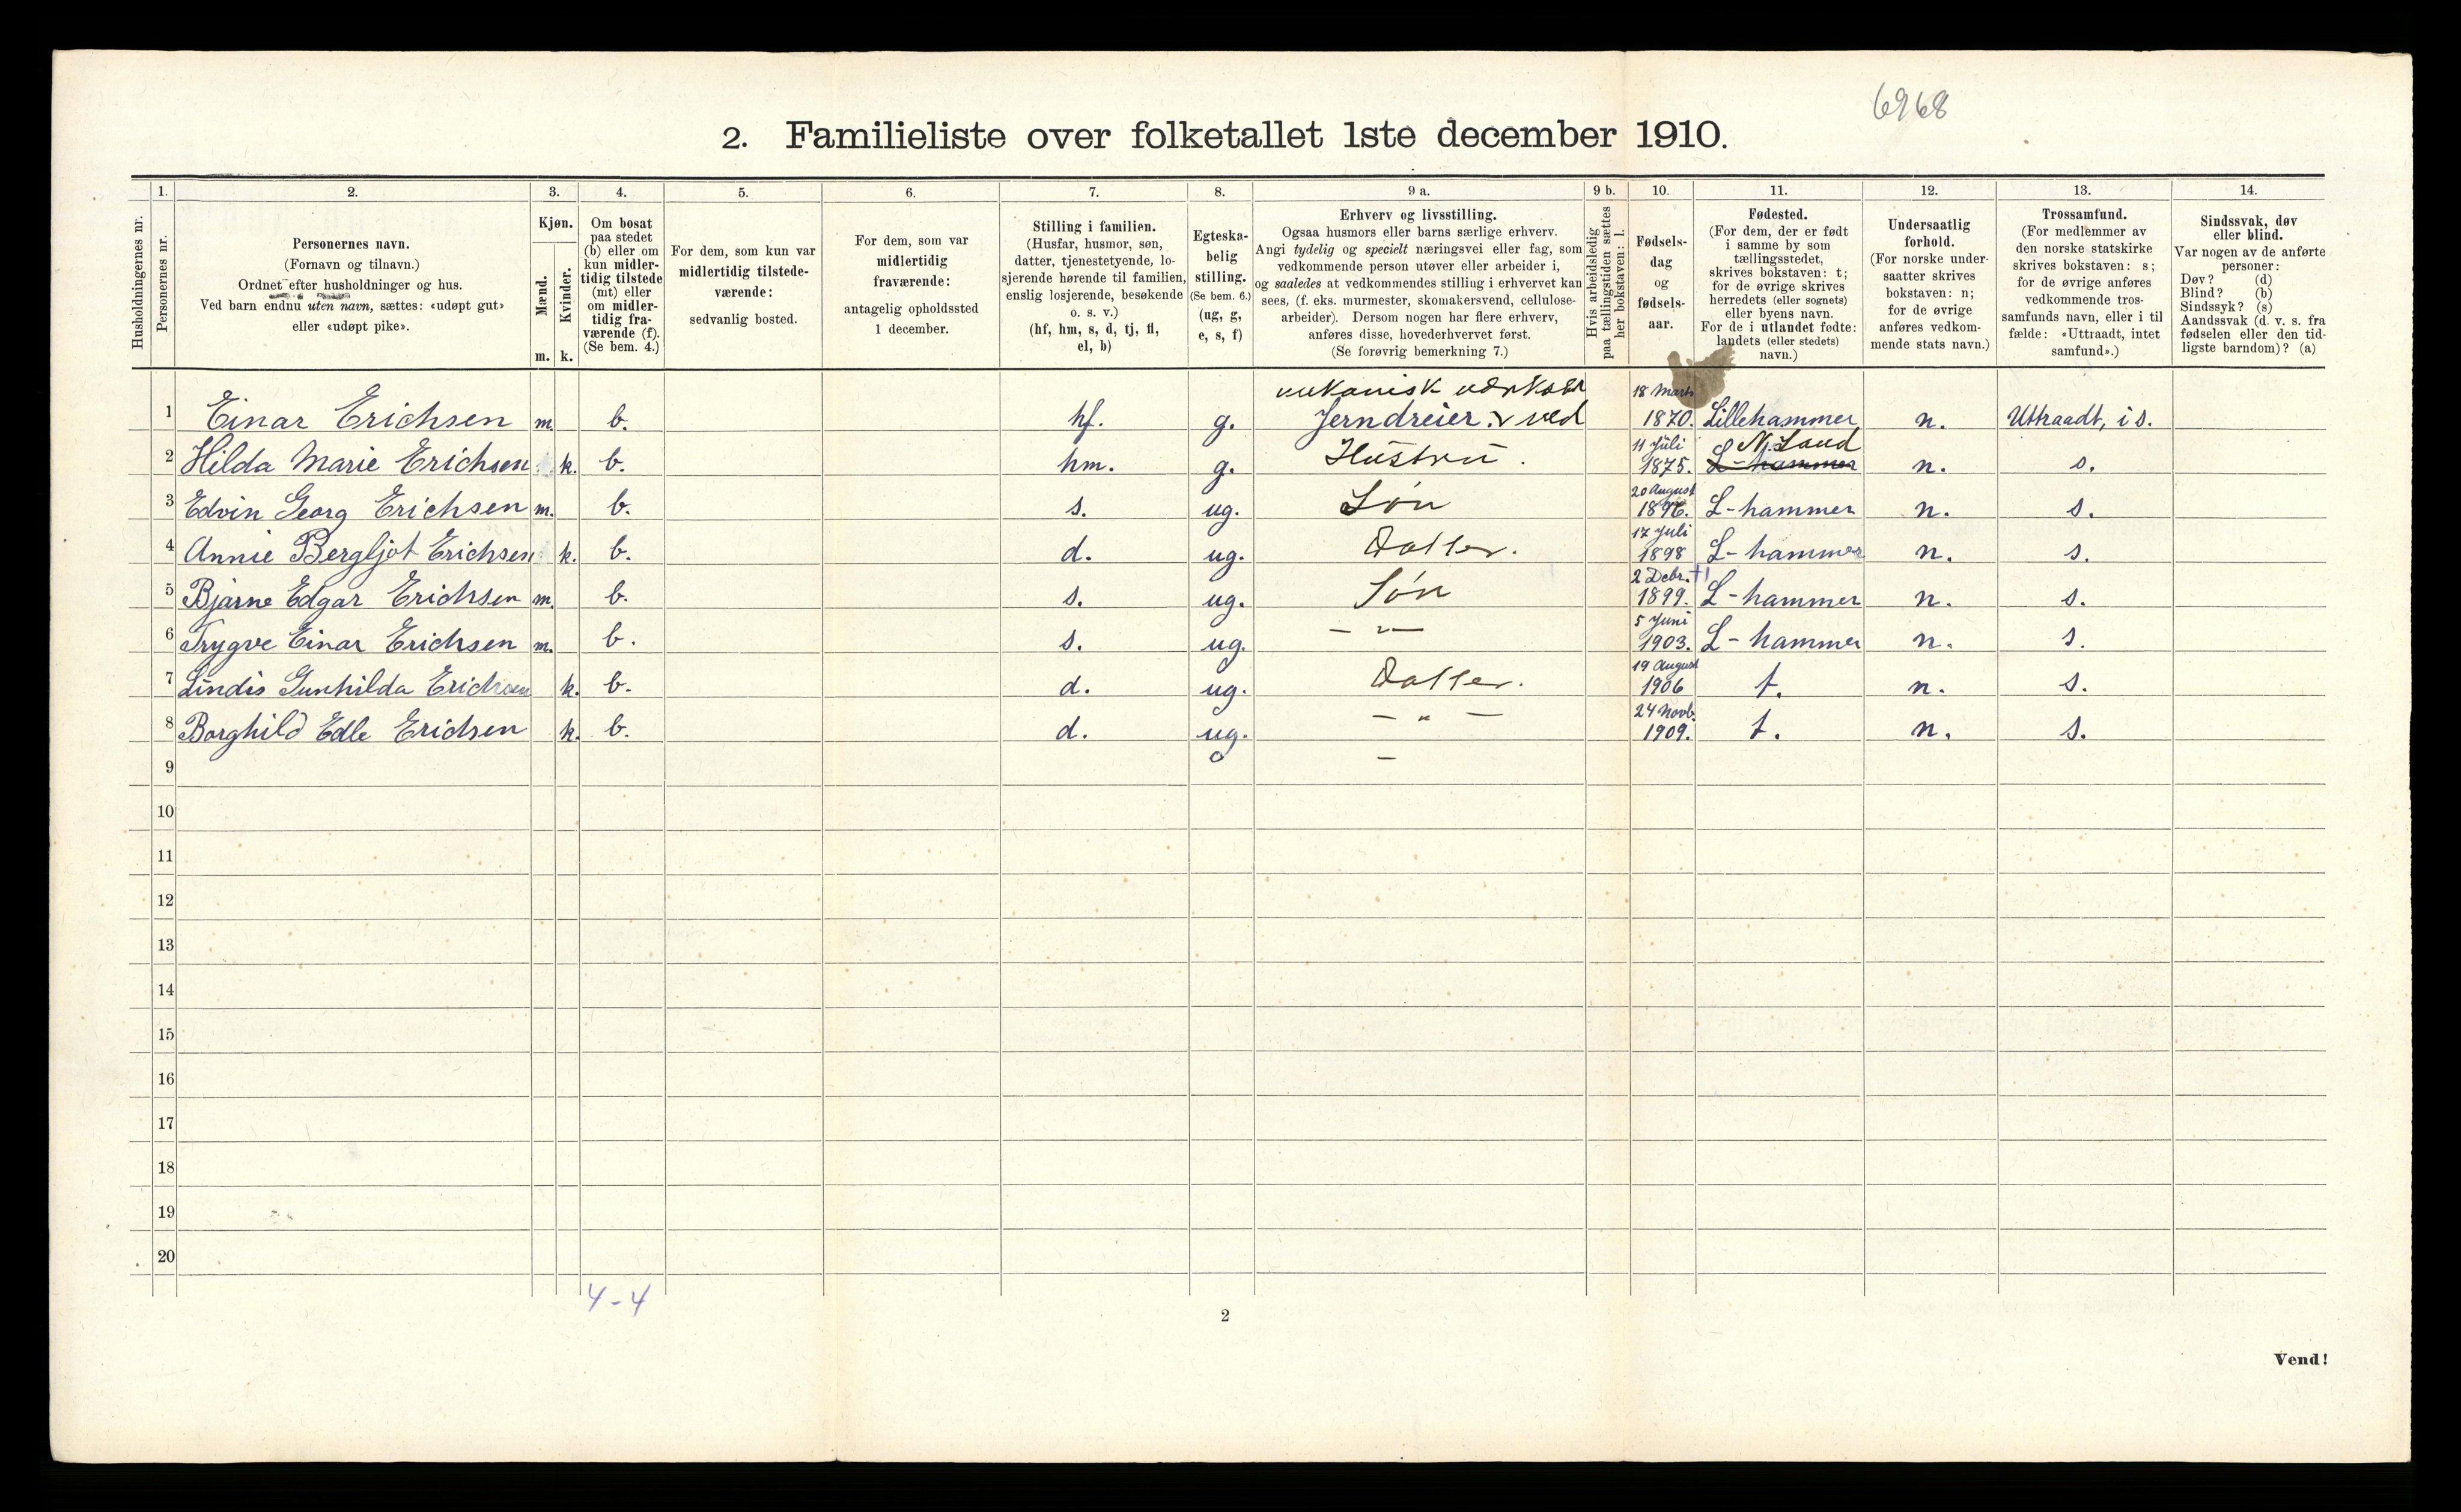 6968
2. Familieliste over folketallet 1ste december 1910.
1. 2. 3. 4. 5. 6. 7. 8. 9 a. 9 b. 10. 11. 12. 13. 14.
Husholdningernes nr.
Personernes nr.
Personernes navn.
(Fornavn og tilnavn.)
Ordnet efter husholdninger og hus.
Ved barn endnu uten navn, sættes: «udøpt gut»
eller «udøpt pike».
Kjøn.
Mænd.
m.
Kvinder.
k.
Om bosat
paa stedet
(b) eller om
kun midler-
tidig tilstede
(mt) eller
om midler-
tidig fra-
værende (f).
(Se bem. 4.)
For dem, som kun var
midlertidig tilstede-
værende:
sedvanlig bosted.
For dem, som var
midlertidig
fraværende:
antagelig opholdssted
1 december.
Stilling i familien.
(Husfar, husmor, søn,
datter, tjenestetyende, lo-
sjerende hørende til familien,
enslig losjerende, besøkende
o. s. v.)
(hf, hm, s, d, tj, fl,
el, b)
Egteska-
belig
stilling.
(Se bem. 6.)
(ug, g,
e, s, f)
Erhverv og livsstilling.
Ogsaa husmors eller barns særlige erhverv.
Angi tydelig og specielt næringsvei eller fag, som
vedkommende person utøver eller arbeider i,
og saaledes at vedkommendes stilling i erhvervet kan
sees, (f. eks. murmester, skomakersvend, cellulose-
arbeider). Dersom nogen har flere erhverv,
anføres disse, hovederhvervet først.
(Se forøvrig bemerkning 7.)
Hvis arbeidsledig
paa tællingstiden sættes
her bokstaven: l.
Fødsels-
dag
og
fødsels-
aar.
Fødested.
(For dem, der er født
i samme by som
tællingsstedet,
skrives bokstaven: t;
for de øvrige skrives
herredets (eller sognets)
eller byens navn.
For de i utlandet fødte:
landets (eller stedets)
navn.)
Undersaatlig
forhold.
(For norske under-
saatter skrives
bokstaven: n;
for de øvrige
anføres vedkom-
mende stats navn.)
Trossamfund.
(For medlemmer av
den norske statskirke
skrives bokstaven: s;
for de øvrige anføres
vedkommende tros-
samfunds navn, eller i til
fælde: «Uttraadt, intet
samfund».)
Sindssvak, døv
eller blind.
Var nogen av de anførte
personer:
Døv? (d)
Blind? (b)
Sindssyk? (s)
Aandssvak (d. v. s. fra
fødselen eller den tid-
ligste barndom)? (a)
mekanisk værksted 18 Marts
1 Einar Erichsen m. b. hf. g. Jerndreier v ved 1870. Lillehammer n. Uttraadt, i s.
11 Juli N. Land
2 Hilda Marie Erichsen k. b. hm. g. Hustru. 1875. L-hammer n. s.
20 August
3 Edvin Georg Erichsen m. b. s. ug. Søn 1896. L-hammer n. s.
17 Juli
4 Annie Bergljot Erichsen k. b. d. ug. Datter. 1898 L-hammer n. s.
2 Debr.
5 Bjarne Edgar Erichsen m. b. s. ug. Søn 1899. L-hammer n. s.
5 Juni
6 Trygve Einar Erichsen m. b. s. ug. —"— 1903. L-hammer n. s.
19 August
7 Lindis Gunhilda Erichsen k. b. d. ug. Datter. 1906 t. n. s.
24 Novb.
8 Borghild Edle Erichsen k. b. d. ug. —"— 1909. t. n. s.
9
10
11
12
13
14
15
16
17
18
19
20
4-4
2
Vend!